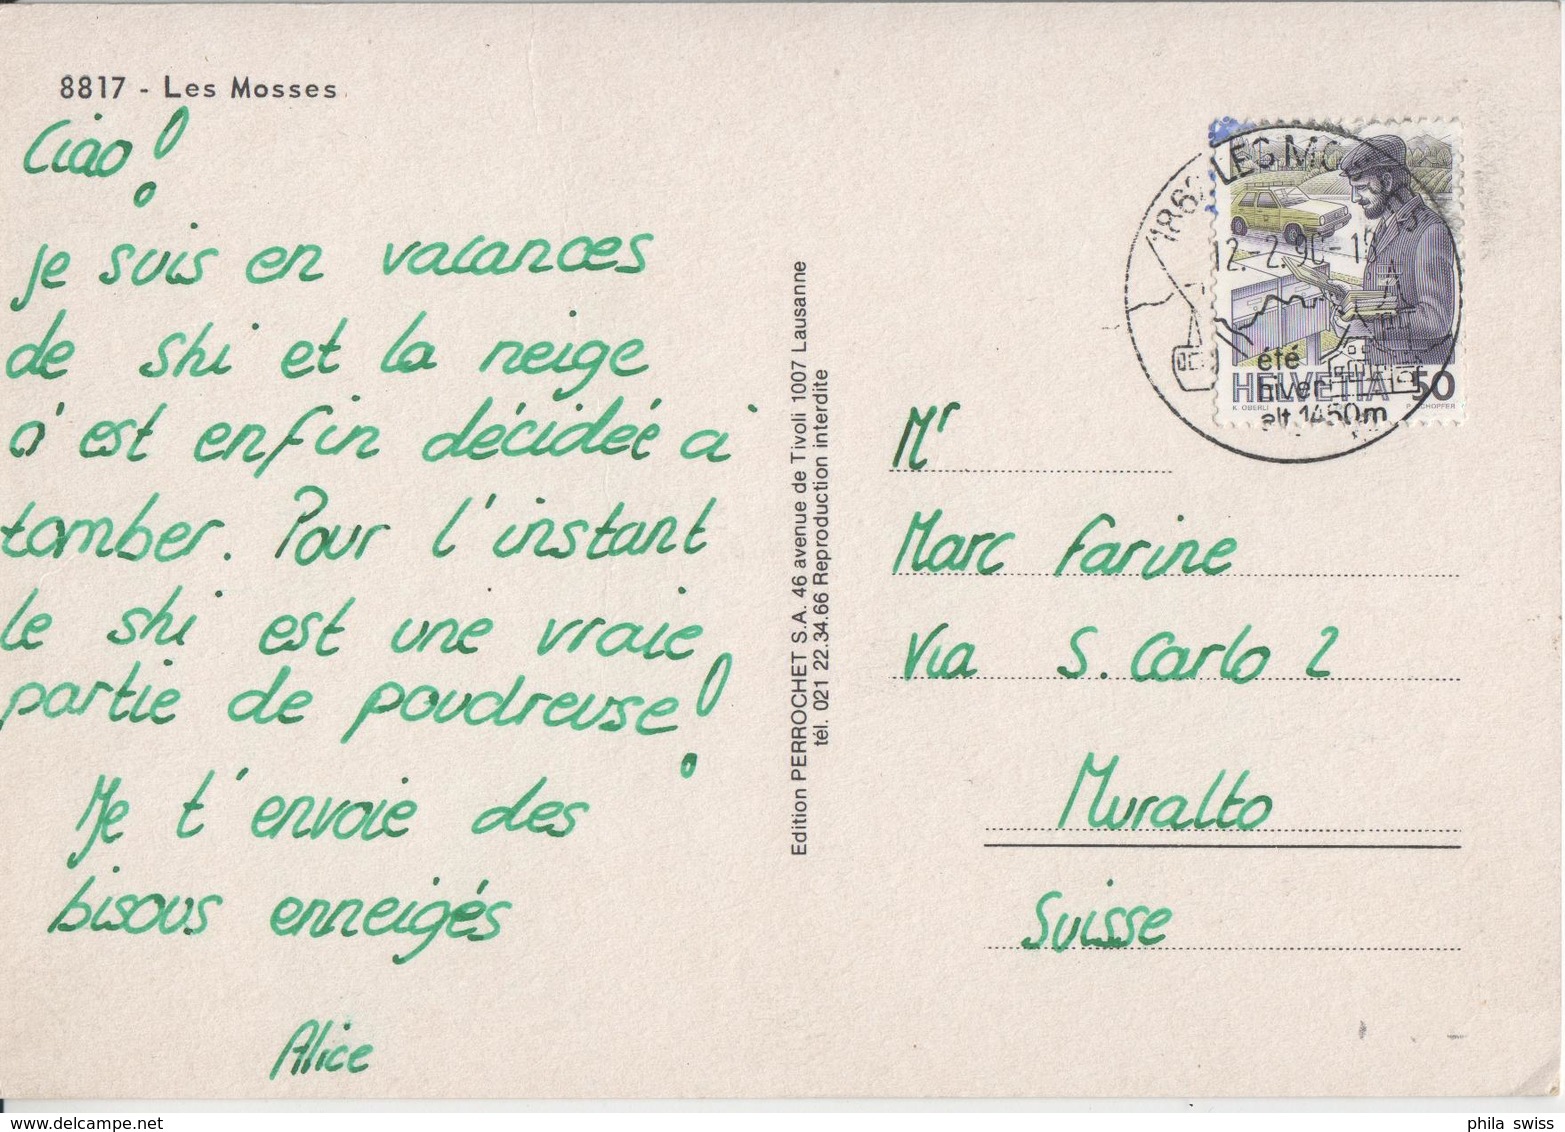 8817 - Les Mosses
Ciao!
Je suis en vacances
de ski et la neige
s'est enfin décidée à
tomber. Pour l'instant
le ski est une vraie
partie de poudreuse!
Je t'envoie des
bisous enneigés
Alice
Edition PERROCHET S.A. 46 avenue de Tivoli 1007 Lausanne
tél. 021 22.34.66 Reproduction interdite
1862 LES MOSSES
12.-2.90-
été
hiver
alt. 1450m
HELVETIA 50
K. OBERLI P. SCHOPFER
Mr
Marc Farine
Via S. Carlo 2
Muralto
Suisse
www.delcampe.net
phila swiss